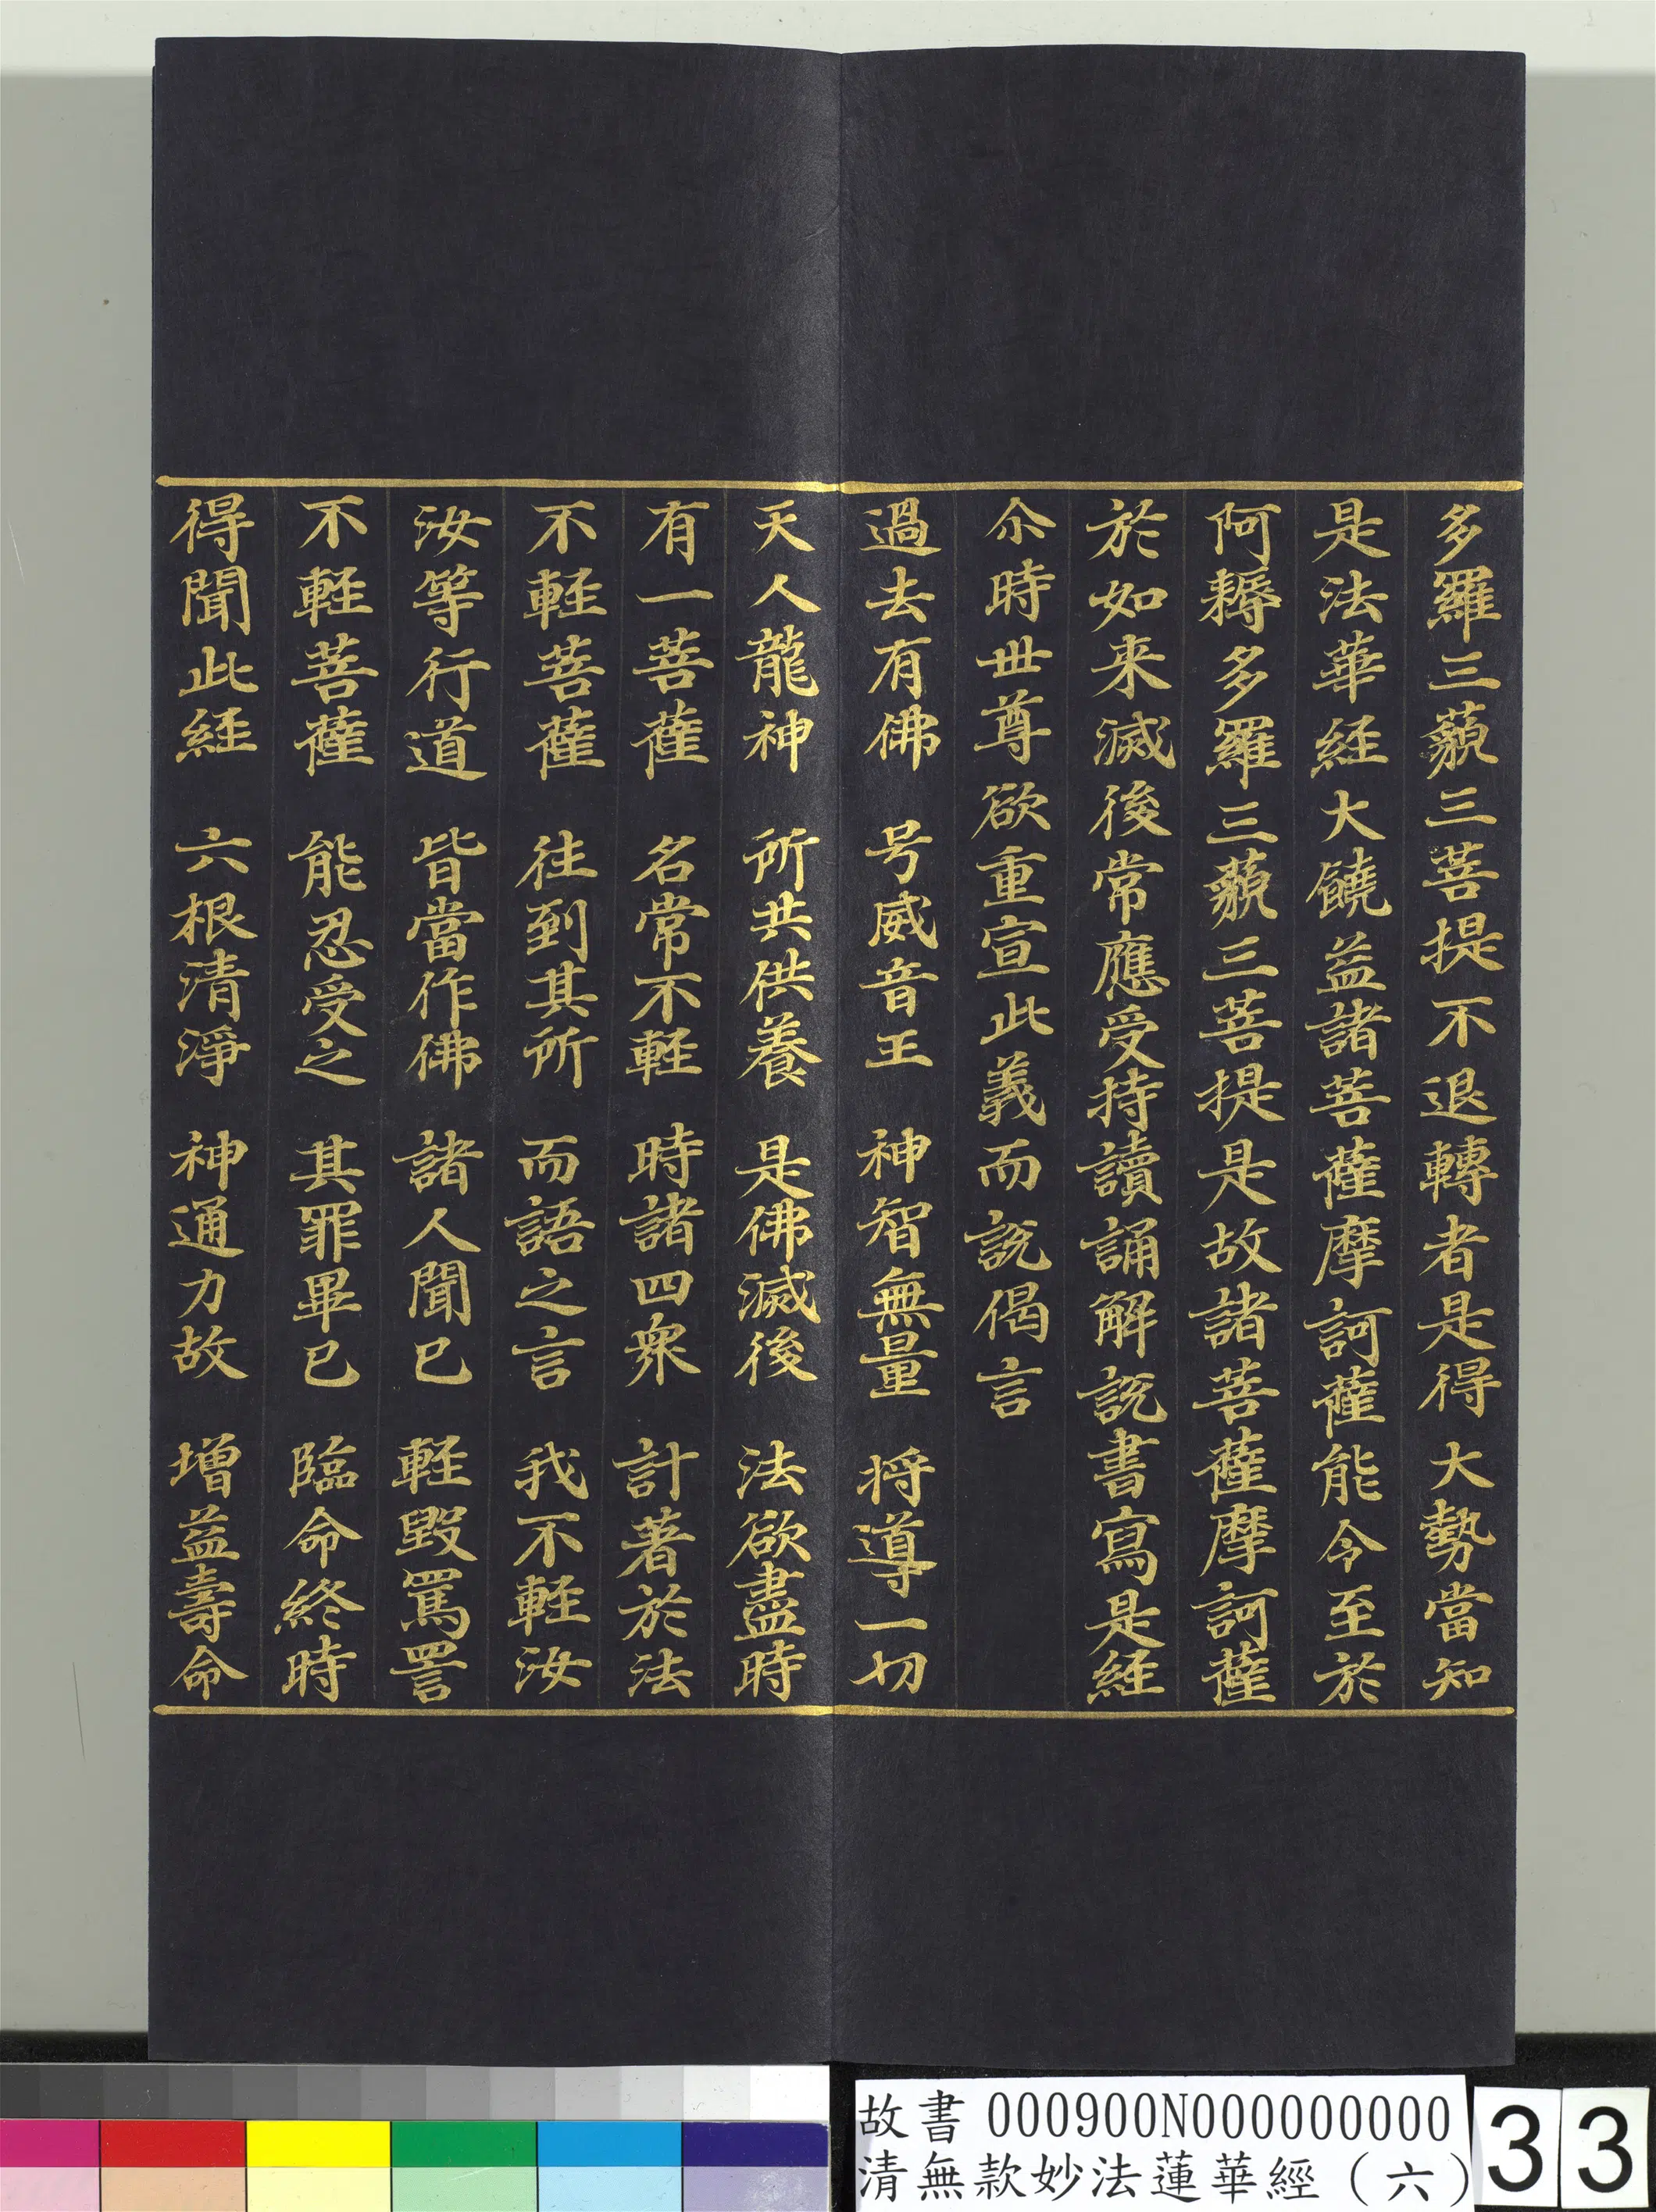 多羅三藐三菩提不退轉者是得大勢當知
是法華経大饒益諸菩薩摩訶薩能令至於
阿耨多羅三藐三菩提是故諸菩薩摩訶薩
於如来滅後常應受持讀誦解説書寫是経
尒時世尊欲重宣此義而説偈言
過去有佛　号威音王　神智無量　将導一切
天人龍神　所共供養　是佛滅後　法欲盡時
有一菩薩　名常不軽　時諸四衆　計著於法
不軽菩薩　往到其所　而語之言　我不軽汝
汝等行道　皆當作佛　諸人聞已　軽毀罵詈
不軽菩薩　能忍受之　其罪畢已　臨命終時
得聞此経　六根清淨　神通力故　增益壽命
故書 000900N000000000
清無款妙法蓮華經（六）
33